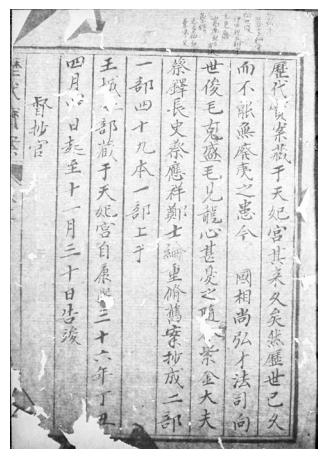 歷代寶案藏于天妃宮其来久矣然歷世已久
而不能無廢失之患今　國相尚弘才法司向
世俊毛克盛毛見龍心甚憂之隨令紫金大夫
蔡鐸長史蔡應祥鄭士綸重脩舊案抄成二部
一部四十九本一部上于
王城一部藏于天妃宮自康熙三十六年丁丑
四月 日起至十一月三十日告竣
督抄官
歷代寶案